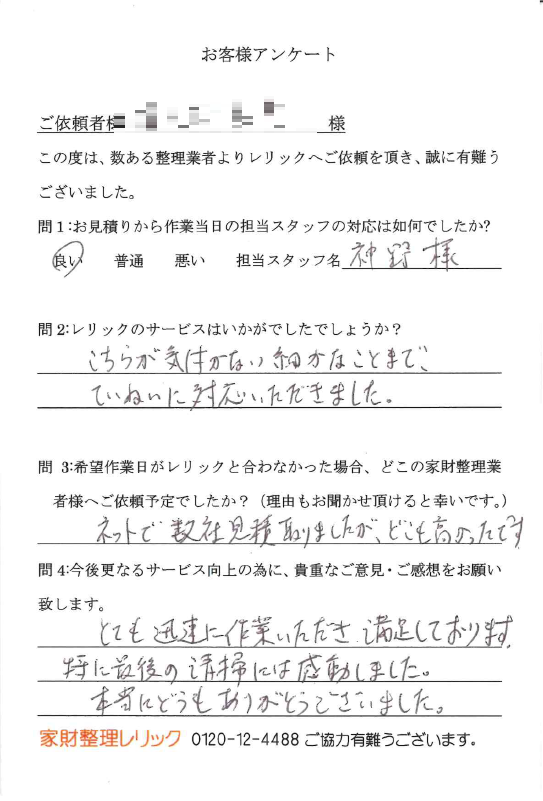 お客様アンケート
ご依頼者様 様
この度は、数ある整理業者よりレリックへご依頼を頂き、誠に有難う
ございました。
問1:お見積りから作業当日の担当スタッフの対応は如何でしたか?
良い 普通 悪い 担当スタッフ名 神野様
問2:レリックのサービスはいかがでしたでしょうか?
こちらが気付かない細かなことまで、
ていねいに対応いただきました。
問 3:希望作業日がレリックと合わなかった場合、どこの家財整理業
者様へご依頼予定でしたか?(理由もお聞かせ頂けると幸いです。)
ネットで数社見積取りましたが、どこも高かったです
問4:今後更なるサービス向上の為に、貴重なご意見・ご感想をお願い
致します。
とても迅速に作業いただき満足しております。
特に最後の清掃には感動しました。
本当にどうもありがとうございました。
家財整理レリック 0120-12-4488 ご協力有難うございます。